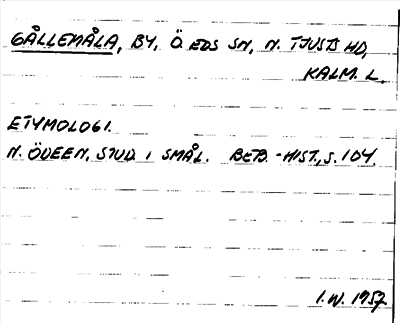 GÅLLEMÅLA, BY, Ö. EDS SN, N. TJUSTS HD,
KALM. L.
ETYMOLOGI.
N. ÖDEEN, STUD. I SMÅL. BEB.-HIST., S. 104.
I.W. 1957